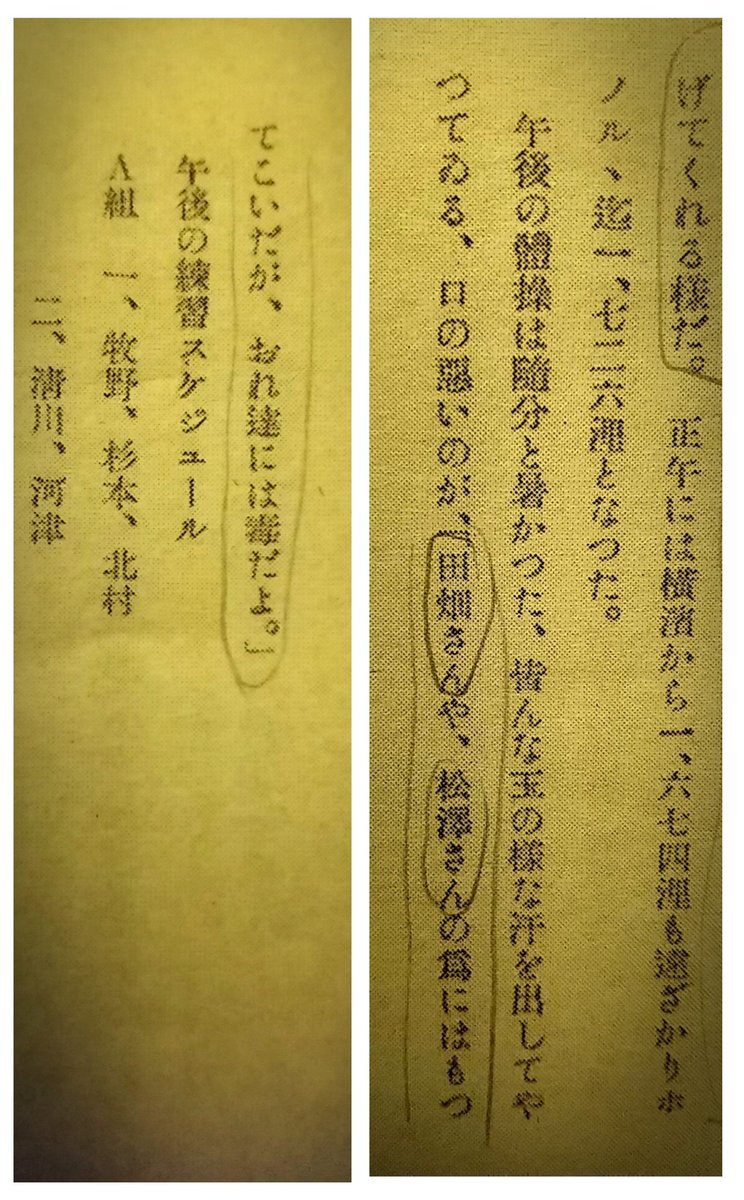 げてくれる様だ。 正午には横濱から一、六七四浬も遠ざかりホ
ノルヽ迄一、七二六浬となつた。
午後の體操は隨分と暑かつた、皆んな玉の様な汗を出してや
つてゐる、口の惡いのが、田畑さんや、松澤さんの爲にはもつ
てこいだが、おれ達には毒だよ。」
午後の練習スケジュール
A組 一、牧野、杉本、北村
二、清川、河津